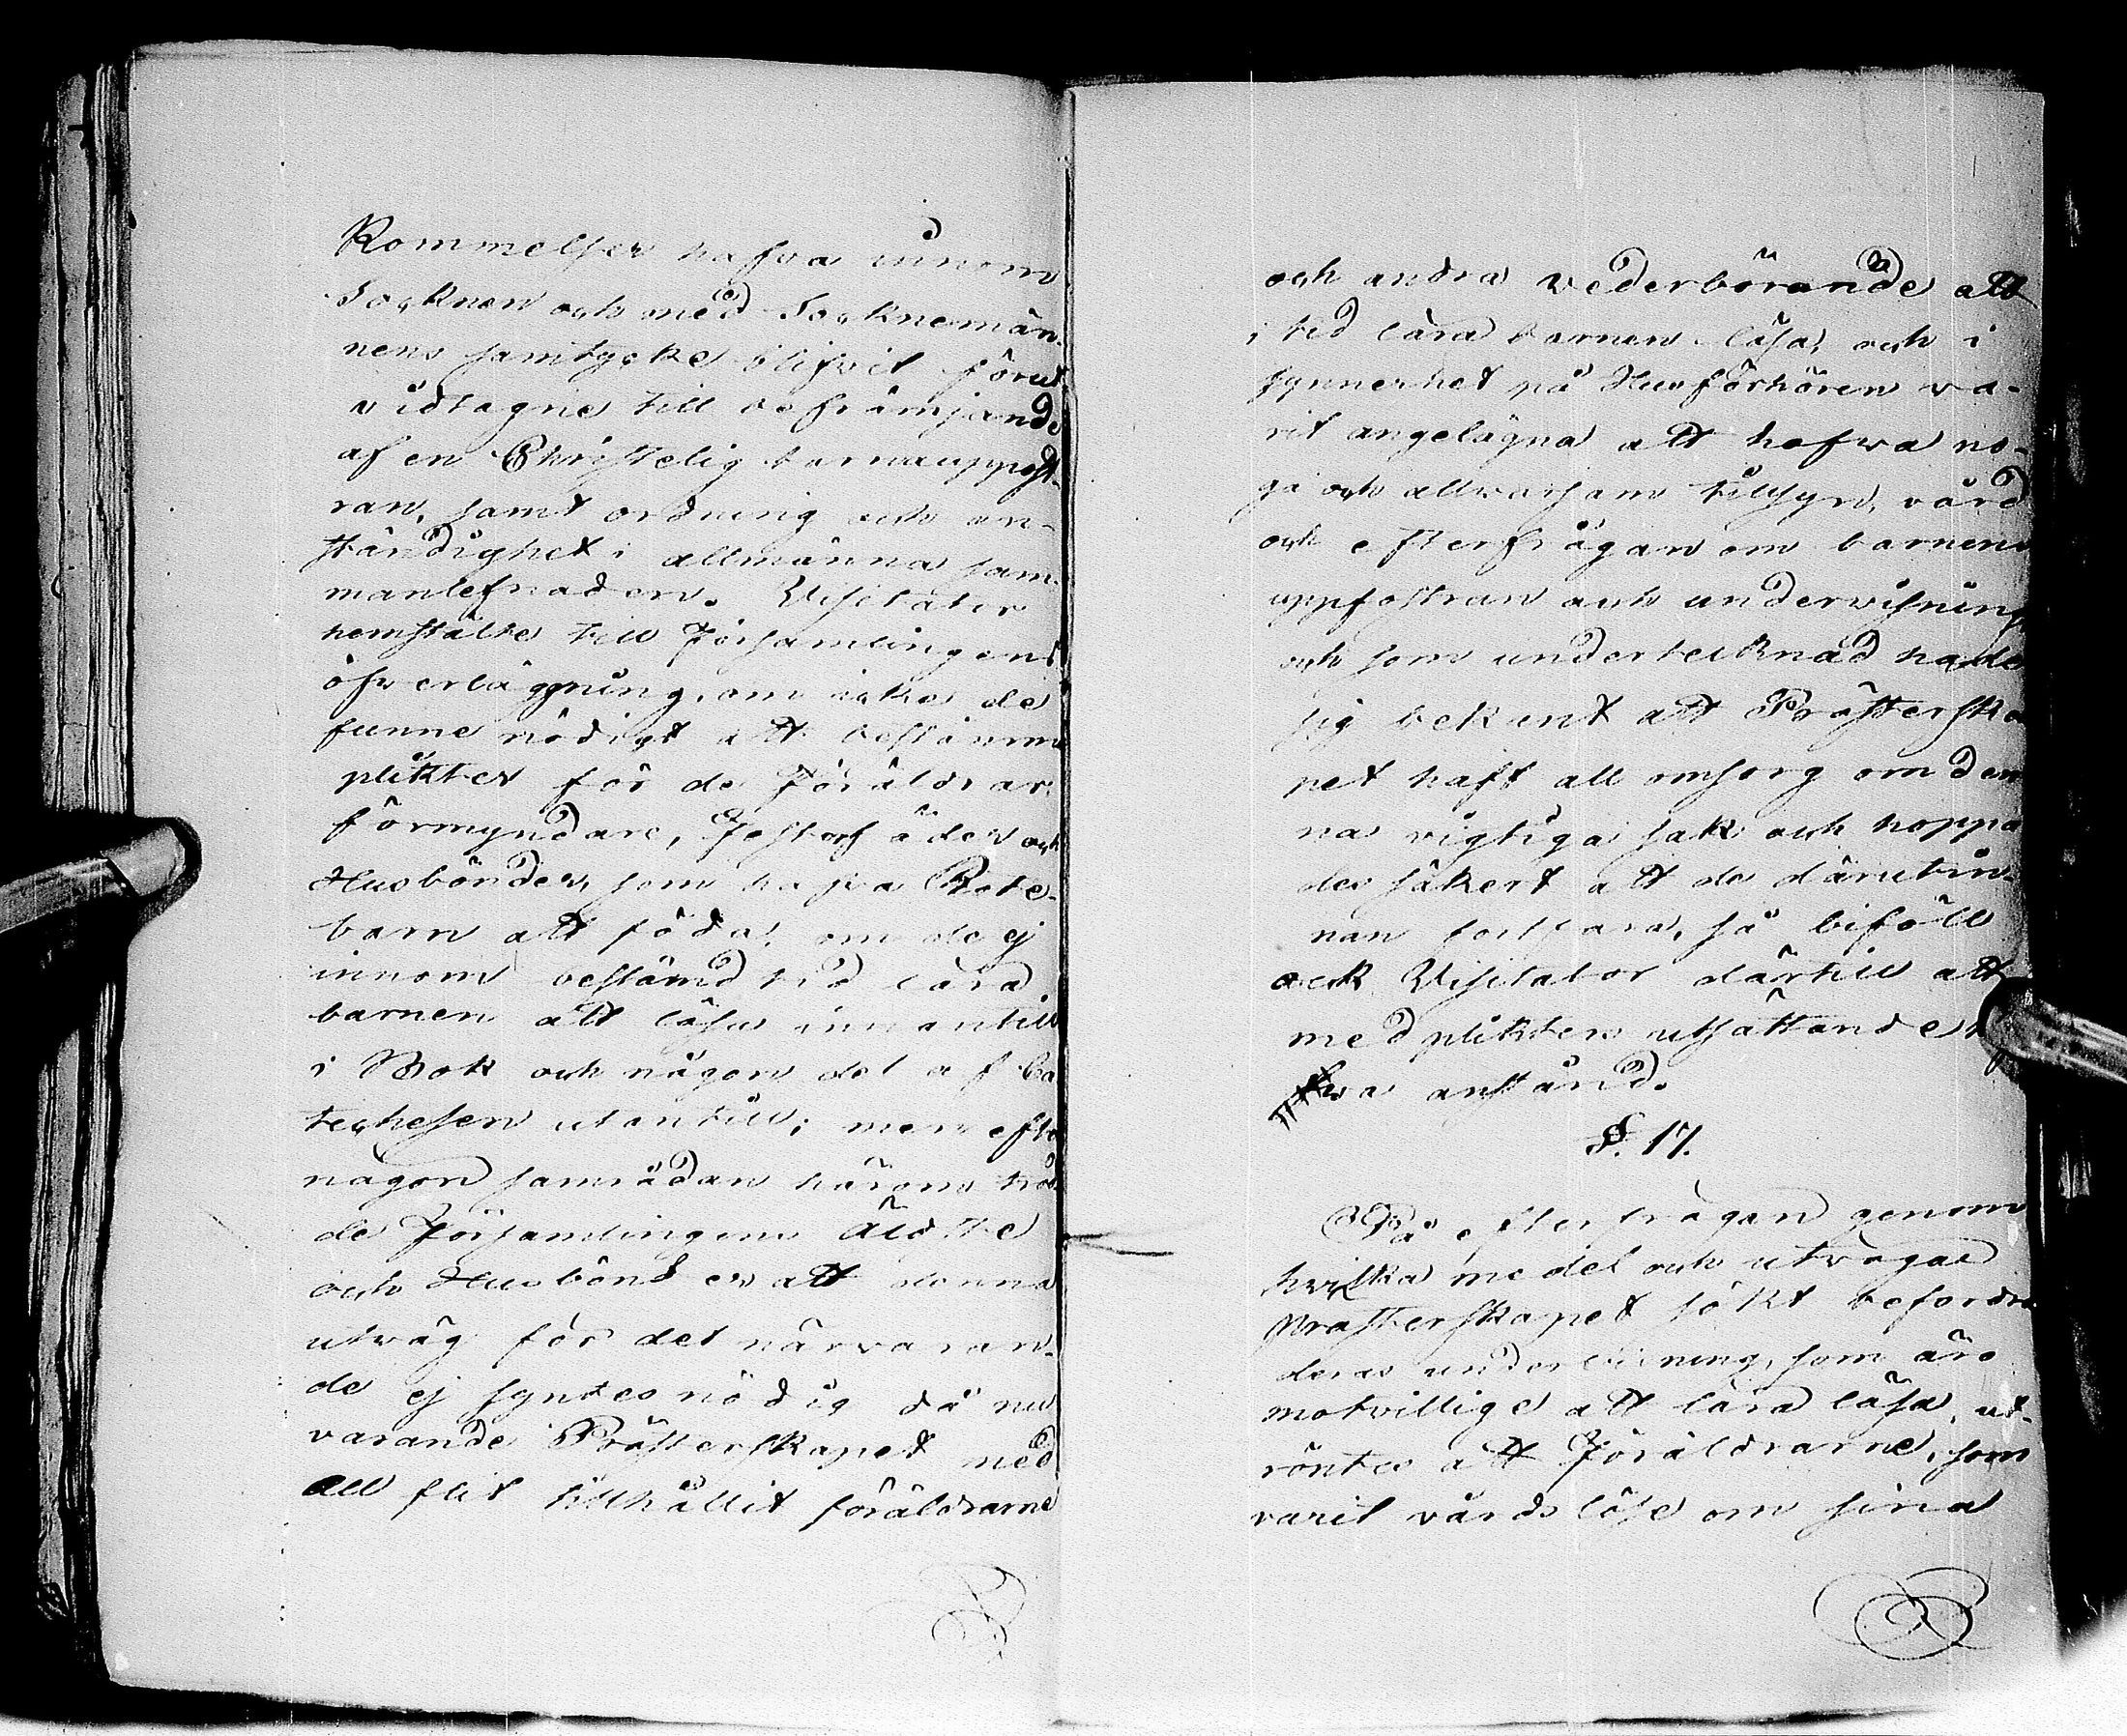 Kommelser hafva innom
Socknen och med Socknemän-
nens samtycke blifvit förut
vidtagne till befrämjande
af en Christelig barnauppfost-
ran, samt ordning och an-
ständighet i allmänna sam-
manlefnaden. Visitator
hemstälte till Församlingens
öfverläggning, om icke de
funne nödigt att bestämma
plikter för de Föräldrar,
förmyndare, Fosterfäder och
Husbönder, som hafva Rote-
barn att föda, om de ej
innom bestämd tid lära
barnen att läsa innantill
i Bok och någon del af Ca
techesen utantill; men efter
någon samrådan härom trod-
de Församlingens Äldste
och Husbönder att denna
utväg för det närvaran-
de ej syntes nödig då nu
varande Prästerskapet med
all flit tillhållit föräldrarne
och andra vederbörande att
i tid lära barnen läsa, och i
synnerhet på Husförhören va-
rit angelägna att hafva no-
ga och allvarsam tillsyn, vård
och efterfrågan om barnens
uppfostran och undervisning
och som undertecknad hade
sig bekant att Prästerska
pet haft all omsorg om den
na vigtiga sak och hoppa
des säkert att de därutin-
nan fortfara, så biföll
ock Visitator därtill att
med plikters utsättande
fva anstånd.
§. 17.
På efterfrågan genom
hvilka medel och utvägar
Prästerskapet sökt befordra
deras undervisning, som äro
motvillige att lära läsa, ut-
röntes att Föräldrarne, som
varit vårdslöse om sina